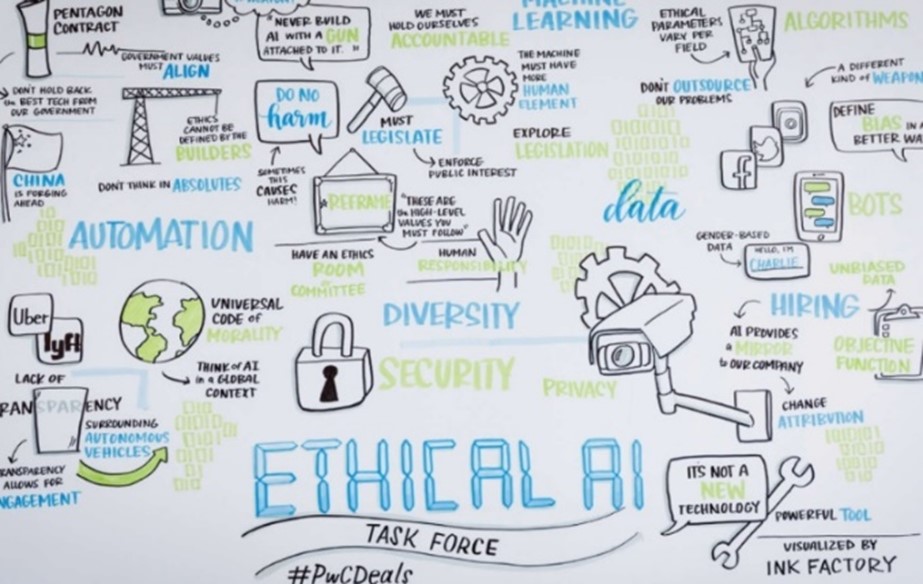 PENTAGON
CONTRACT
GOVERNMENT VALUES
MUST ALIGN
DON'T HOLD BACK
the BEST TECH FROM
OUR GOVERNMENT
CHINA
IS FORGING
AHEAD
ETHICS
CANNOT BE
DEFINED BY THE
BUILDERS
DON'T THINK IN ABSOLUTES
"NEVER BUILD
AI WITH A GUN
ATTACHED TO IT."
DO NO
harm
SOMETIMES
THIS
CAUSES
HARM!
WE MUST
HOLD OURSELVES
ACCOUNTABLE
MUST
LEGISLATE
ENFORCE
PUBLIC INTEREST
MACHINE
LEARNING
THE MACHINE
MUST HAVE
MORE
HUMAN
ELEMENT
EXPLORE
LEGISLATION
ETHICAL
PARAMETERS
VARY PER
FIELD
ALGORITHMS
DON'T OUTSOURCE
OUR PROBLEMS
A DIFFERENT
KIND of WEAPON
DEFINE
BIAS IN A
BETTER WA
f
BOTS
data
GENDER-BASED
DATA
HELLO, I'M
CHARLIE
UNBIASED
DATA
HIRING
AI PROVIDES
a MIRROR
to OUR COMPANY
OBJECTIVE
FUNCTION
CHANGE
ATTRIBUTION
AUTOMATION
REFRAME
"THESE ARE
the HIGH-LEVEL
VALUES YOU
MUST FOLLOW"
HAVE AN ETHICS
ROOM
or
COMMITTEE
HUMAN
RESPONSIBILITY
DIVERSITY
SECURITY
PRIVACY
Uber
lyft
UNIVERSAL
CODE of
MORALITY
THINK of AI
in a GLOBAL
CONTEXT
LACK OF
RANSPARENCY
SURROUNDING
AUTONOMOUS
VEHICLES
RANSPARENCY
ALLOWS FOR
NGAGEMENT
ETHICAL AI
TASK FORCE
#PwCDeals
ITS NOT A
NEW
TECHNOLOGY
POWERFUL TOOL
VISUALIZED BY
INK FACTORY